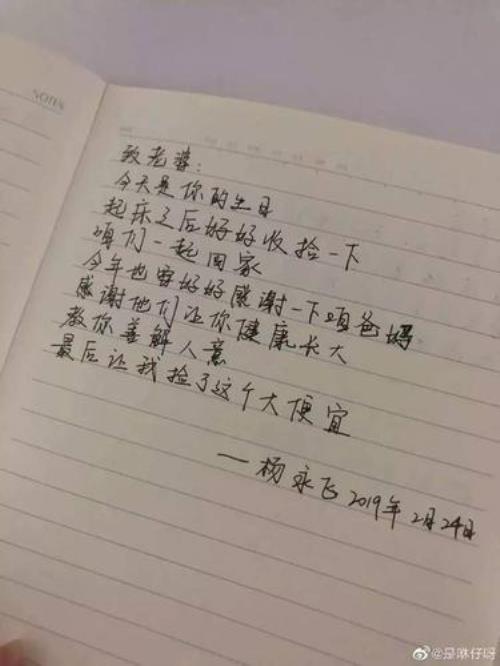 NOTES
致老婆:
今天是你的生日
起床之后好好收拾一下
咱们一起回家
今年也要好好感谢一下咱爸妈
感谢他们让你健康长大
教你善解人意
最后让我捡了这个大便宜
——杨永飞 2019年2月24日
@是琳仔呀